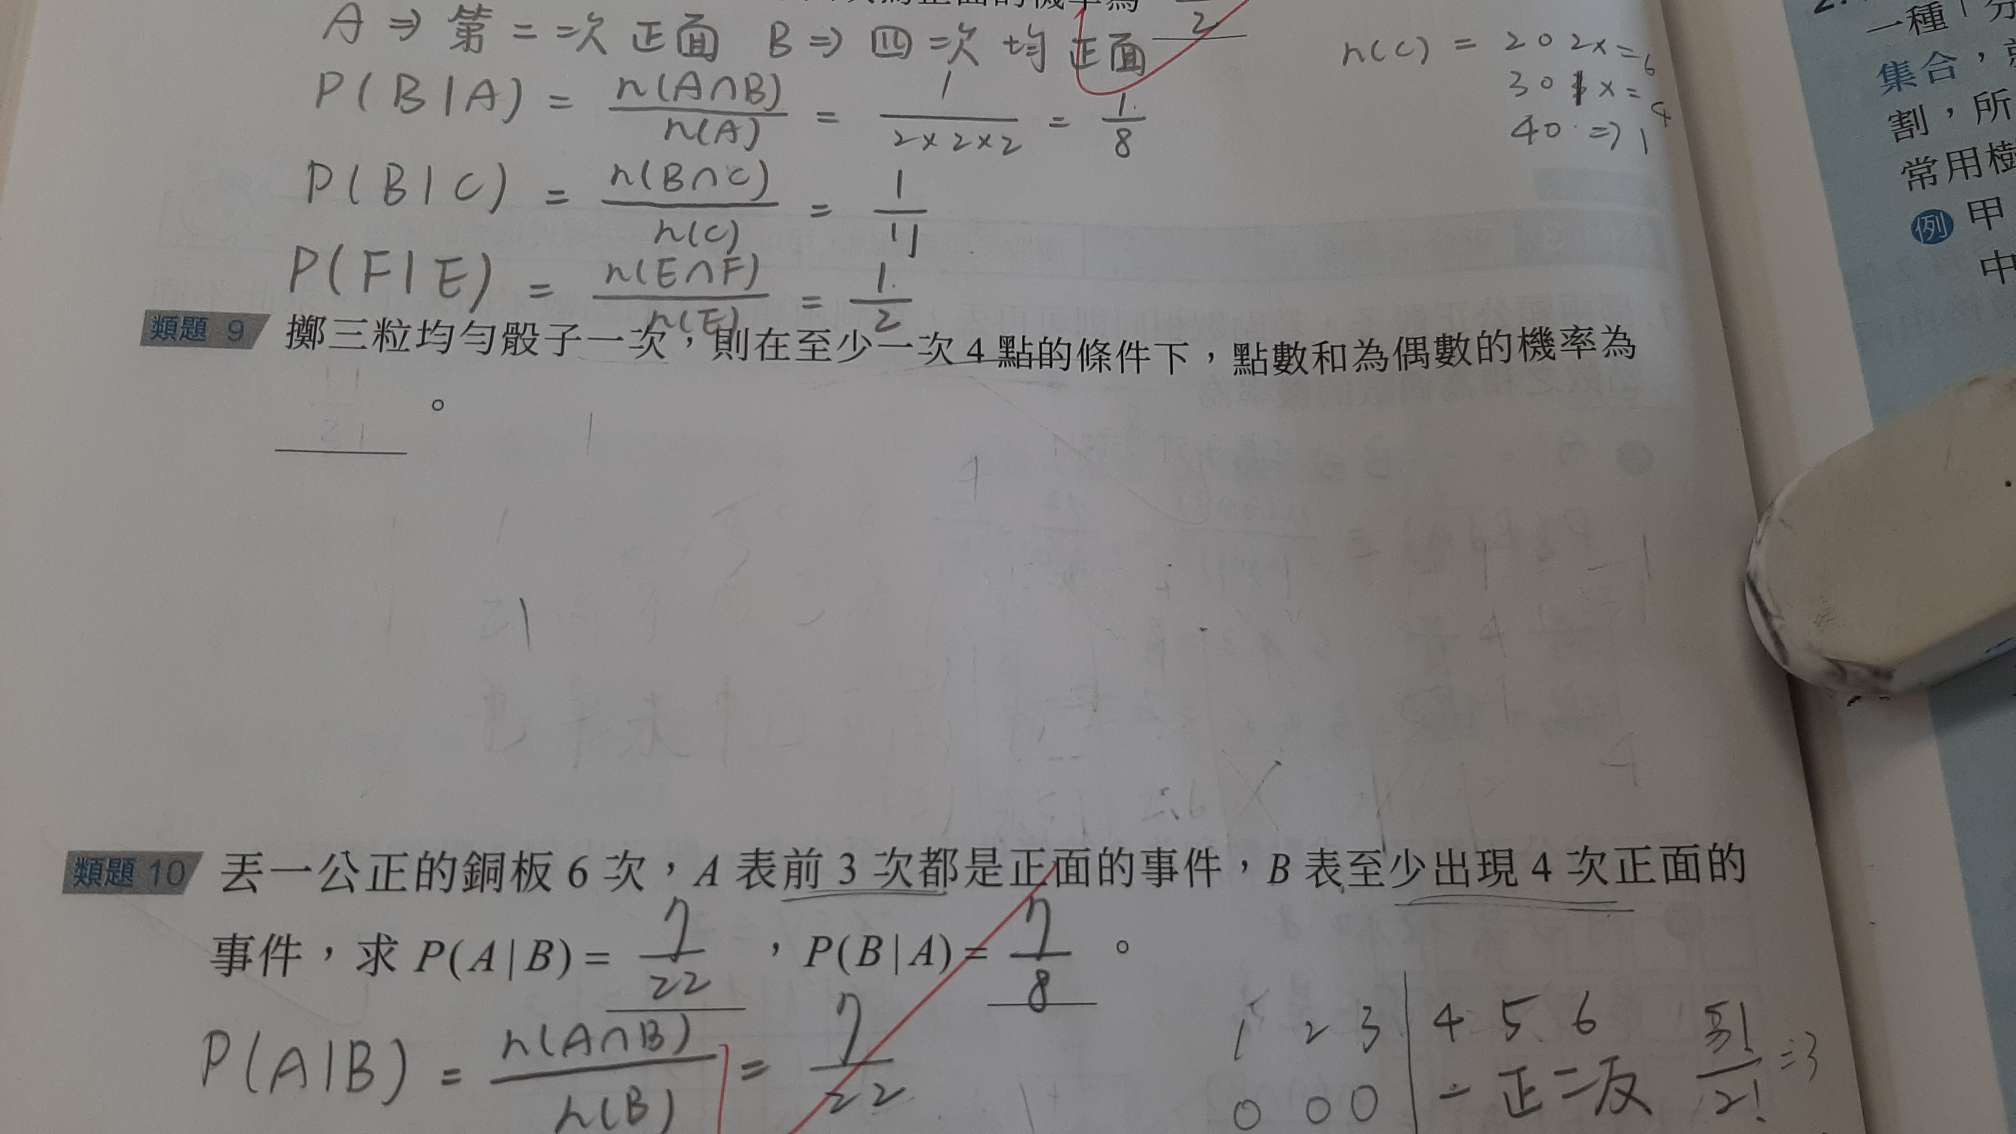 為正面的機率為 2
A ⇒ 第二次正面 B ⇒ 四次均正面
n(C) = 2O 2X = 6
3O 1X = 4
4O ⇒ 1
P(B|A) = n(A∩B)/n(A) = 1/2×2×2 = 1/8
P(B|C) = n(B∩C)/n(C) = 1/11
P(F|E) = n(E∩F)/n(E) = 1/2
類題 9 擲三粒均勻骰子一次,則在至少一次 4 點的條件下,點數和為偶數的機率為
。
類題 10 丟一公正的銅板 6 次,A 表前 3 次都是正面的事件,B 表至少出現 4 次正面的
事件,求 P(A|B) = 7/22 ,P(B|A) = 7/8 。
P(A|B) = n(A∩B)/n(B) = 7/22
1 2 3 | 4 5 6
0 0 0 | 一正二反 3!/2! = 3
一種「分
集合,
割,所
常用樹
例 甲
中